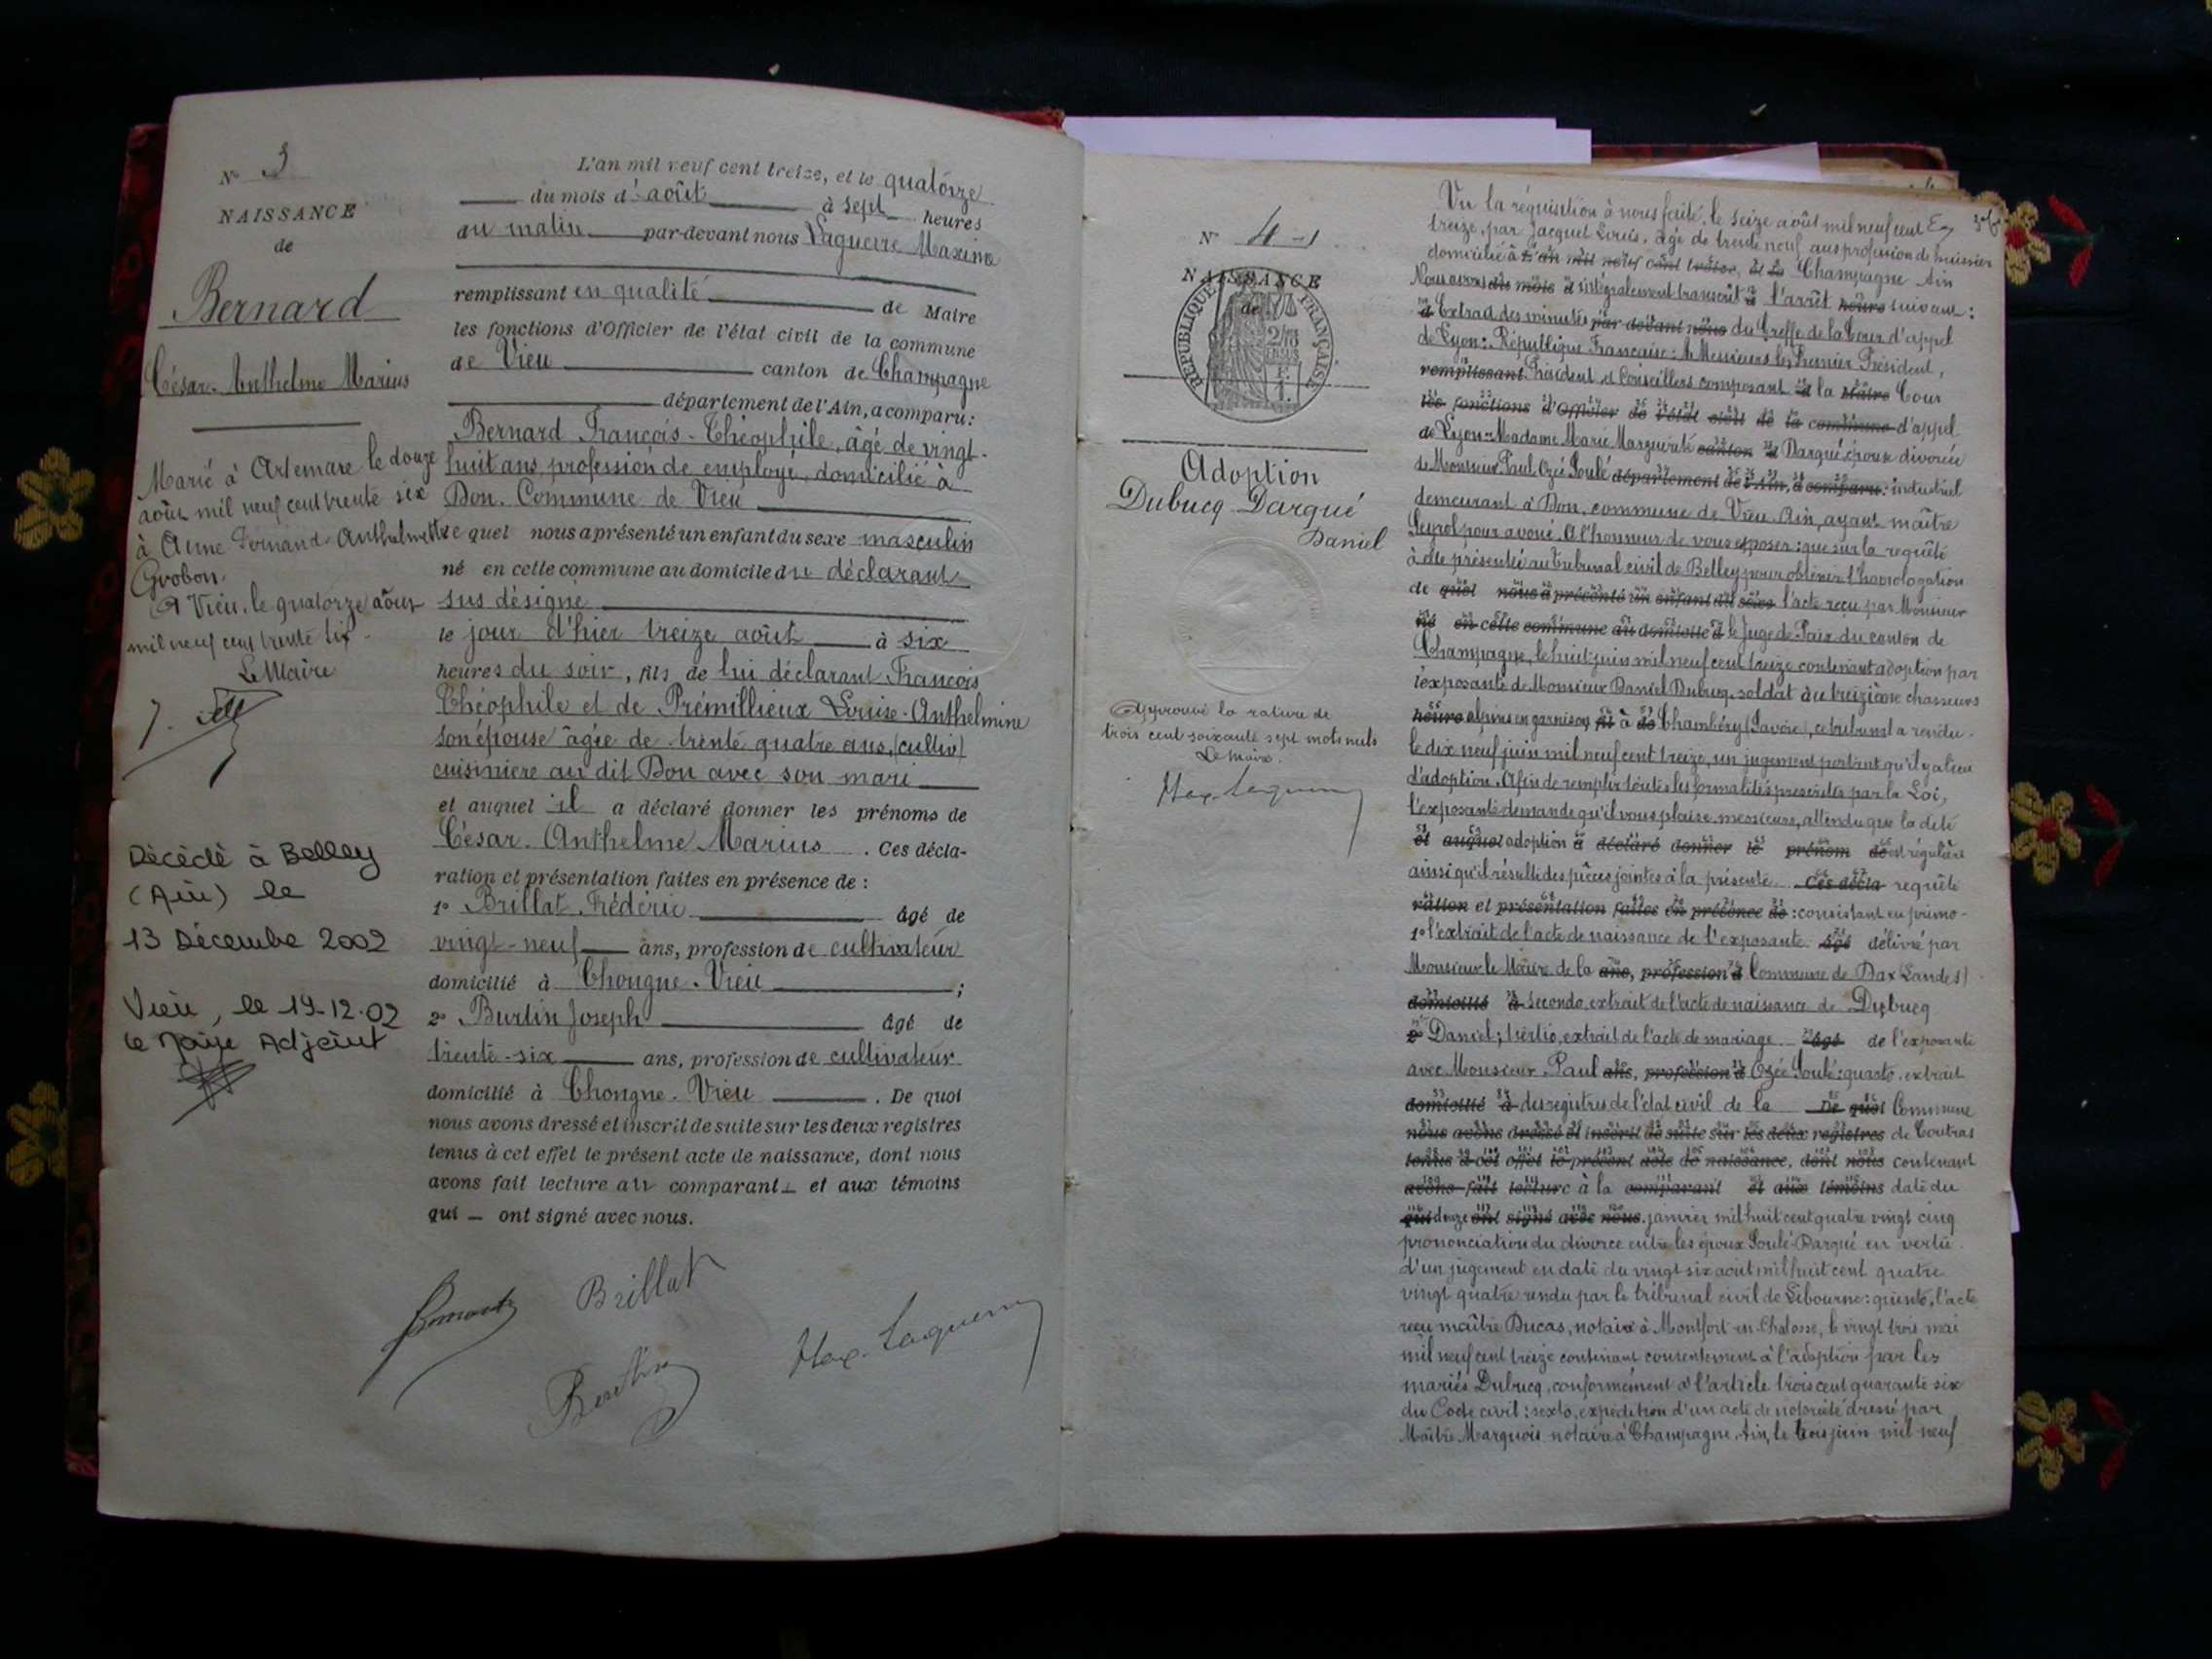 N° 3
NAISSANCE
de
Bernard
César-Anthelme Marius
Marié à Artemare le douze
août mil neuf cent trente six
à Anne Fernande Anthelmette
Grobon.
A Vieu, le quatorze août
mil neuf cent trente six.
Le Maire
Décédé à Belley
(Ain) le
13 Décembre 2002
Vieu, le 19-12-02
Le Maire Adjoint
L'an mil neuf cent treize, et le quatorze
du mois d'août à sept heures
du matin par-devant nous Laguerre Maxime
remplissant en qualité de Maire
les fonctions d'Officier de l'état civil de la commune
de Vieu canton de Champagne
département de l'Ain, a comparu:
Bernard François-Théophile, âgé de vingt-
huit ans, profession de employé, domicilié à
Don. Commune de Vieu
Lequel nous a présenté un enfant du sexe masculin
né en cette commune au domicile du déclarant
sus désigné
le jour d'hier treize août à six
heures du soir, fils de lui déclarant François
Théophile et de Prémillieux Louise-Anthelmine
son épouse âgée de trente quatre ans, (cultiv)
cuisinière au dit Don avec son mari
et auquel il a déclaré donner les prénoms de
César-Anthelme Marius. Ces décla-
ration et présentation faites en présence de :
1° Brillat Frédéric âgé de
vingt-neuf ans, profession de cultivateur
domicilié à Chongne-Vieu ;
2° Burtin Joseph âgé de
trente-six ans, profession de cultivateur
domicilié à Chongne-Vieu. De quoi
nous avons dressé et inscrit de suite sur les deux registres
tenus à cet effet le présent acte de naissance, dont nous
avons fait lecture au comparant et aux témoins
qui ont signé avec nous.
Brillat
Burtin
Max. Laguerre
N° 4-1
NAISSANCE
de
REPUBLIQUE FRANÇAISE
Adoption
Dubucq-Darqué
Daniel
Approuvé la rature de
trois cent soixante sept mots nuls
Le Maire.
Max. Laguerre
Vu la réquisition à nous faite, le seize août mil neuf cent
treize, par Jacquet Louis, âgé de trente neuf ans profession de huissier
domicilié à L'an mil neuf cent treize, et le Champagne Ain
Nous avons du mois d intégralement transcrit à l'arrêt heures suivant :
d Extrait des minutes par-devant nous du Greffe de la Cour d'appel
de Lyon : République Française : A Messieurs les Premier Président,
remplissant Président et Conseillers composant la Maire Cour
les fonctions d'Officier de l'état civil de la commune d'appel
de Lyon - Madame Marie Marguerite canton de Darqué, épouse divorcée
de Monsieur Paul Ozée Soulé département de l'Ain, a comparu : industriel
demeurant à Don, commune de Vieu Ain, ayant maître
Peyrol pour avoué. A l'honneur de vous exposer : que sur la requête
à elle présentée au tribunal civil de Belley pour obtenir l'homologation
de quel nous a présenté un enfant du sexe l'acte reçu par Monsieur
né en cette commune au domicile d le Juge de Paix du canton de
Champagne, le huit juin mil neuf cent treize contenant adoption par
l'exposante de Monsieur Daniel Dubucq, soldat au treizième chasseurs
heures alpins en garnison, fil à de Chambéry (Savoie), ce tribunal a rendu
le dix neuf juin mil neuf cent treize, un jugement portant qu'il y a lieu
d'adoption. Afin de remplir toutes les formalités prescrites par la Loi,
l'exposante demande qu'il vous plaise, messieurs, attendu que la dite
et auquel adoption a déclaré donner le prénom de est régulière
ainsi qu'il résulte des pièces jointes à la présente Ces décla requête
ration et présentation faites en présence de : consistant en primo -
1° l'extrait de l'acte de naissance de l'exposante. âgé délivré par
Monsieur le Maire de la ans, profession d Commune de Dax (Landes)
domicilié à secondo, extrait de l'acte de naissance de Dubucq
2° Daniel ; tertio, extrait de l'acte de mariage âgé de l'exposante
avec Monsieur Paul ans, profession d Ozée Soulé : quarto, extrait
domicilié à des registres de l'état civil de la De quoi Commune
nous avons dressé et inscrit de suite sur les deux registres de Coutras
tenus à cet effet le présent acte de naissance, dont nous contenant
avons fait lecture à la comparant et aux témoins date du
qui douze ont signé avec nous. janvier mil huit cent quatre vingt cinq
prononciation du divorce entre les époux Soulé-Darqué en vertu
d'un jugement en date du vingt six août mil huit cent quatre
vingt quatre rendu par le tribunal civil de Libourne : quinto, l'acte
reçu maître Ducas, notaire à Montfort-en-Chalosse, le vingt trois mai
mil neuf cent treize contenant consentement à l'adoption par les
mariés Dubucq, conformément à l'article trois cent quarante six
du Code civil : sexto, expédition d'un acte de notoriété dressé par
Maître Marquois notaire à Champagne, Ain, le trois juin mil neuf